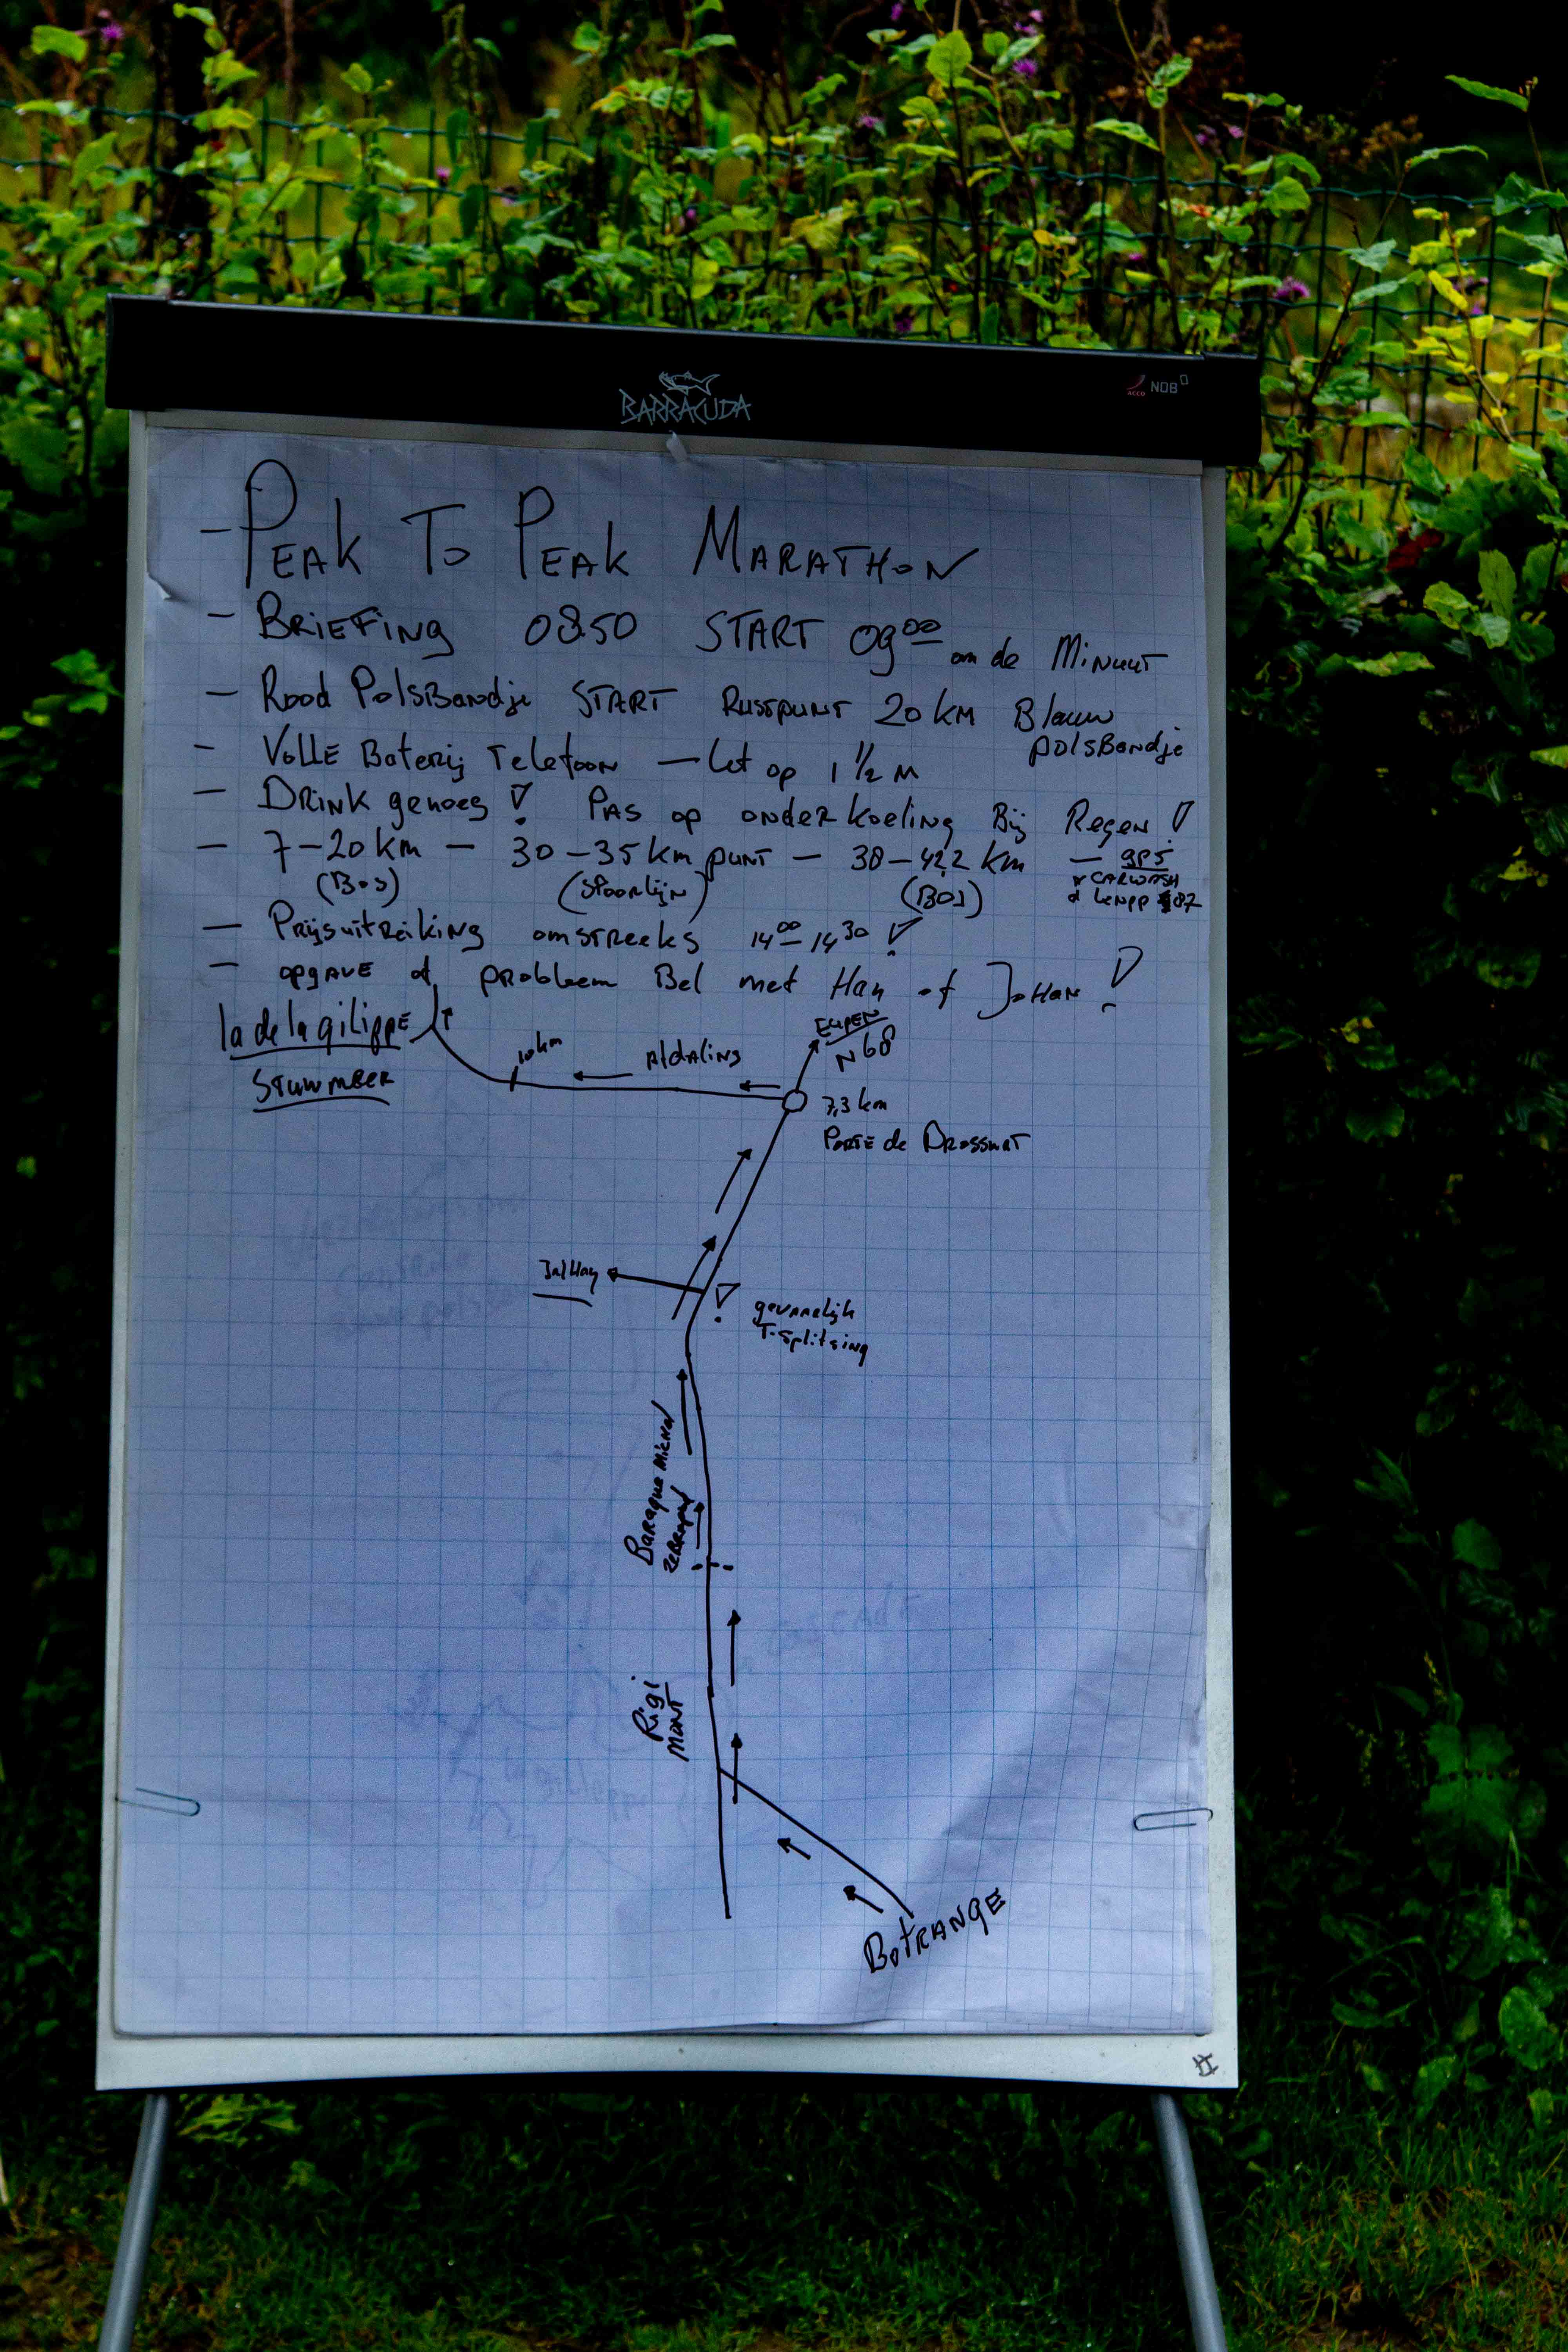 BARRACUDA
ACCO NOBO
- PEAK TO PEAK MARATHON
- BRIEFING 0850 START 09 00 om de MINUUT
- Rood PolsBandje START RUSTPUNT 20 KM Blauw
polsBandje
- VOLLE Baterij Telefoon - let op 1 1/2 M
- DRINK genoeg ! PAS op onderkoeling Bij Regen !
- 7-20 km - 30-35 km punt - 38-42,2 km - GPS
(Bos) (Spoorlijn) (BOS)
CARWASH
87
- Prijsuitreiking omstreeks 14 00 - 14 30 !
- opgAVE of probleem Bel met Han of JoHan !
la de la gilippe
STUWMEER
10 km
AfdALing
EUPEN
N68
7,3 km
PORTE de
JalHay
!
gevaarlijk
T-Splitsing
Baraque Michel
zebrapad
Rigi
MONT
BOTRANGE